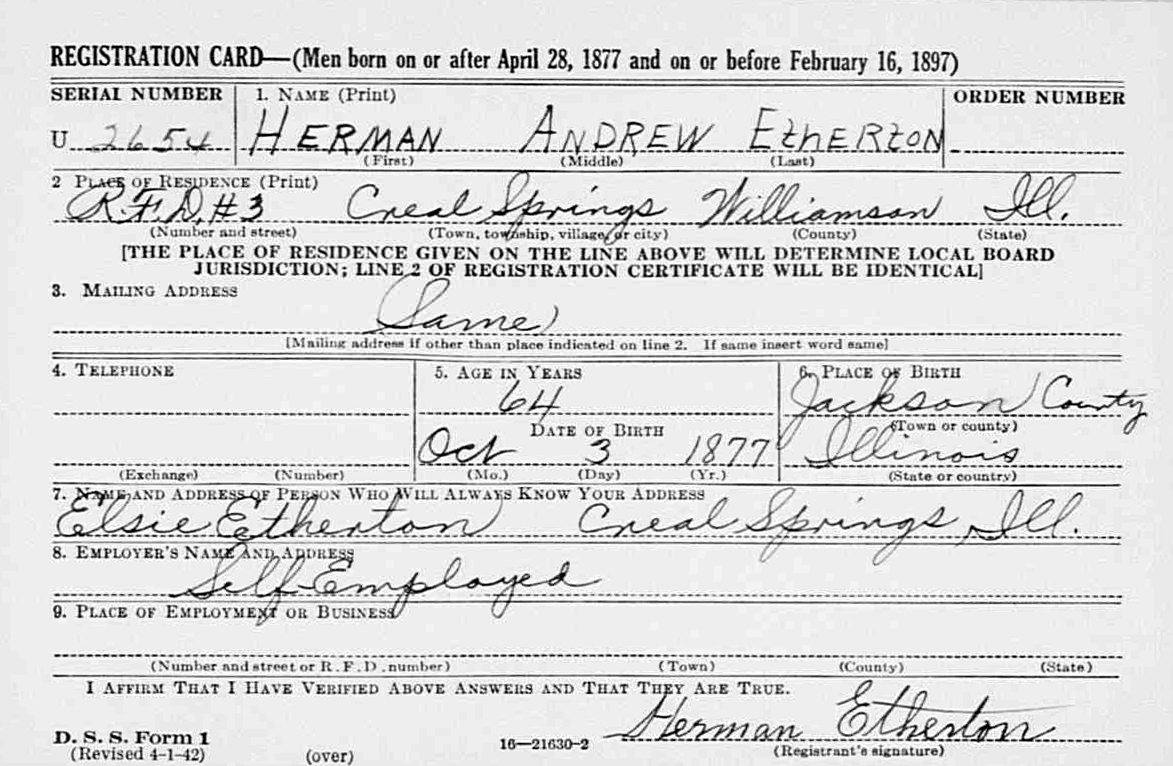 REGISTRATION CARD—(Men born on or after April 28, 1877 and on or before February 16, 1897)
SERIAL NUMBER 1. NAME (Print) ORDER NUMBER
U 2654 HERMAN ANDREW EthERtON
(First) (Middle) (Last)
2 PLACE OF RESIDENCE (Print)
R.F.D. #3 Creal Springs Williamson Ill.
(Number and street) (Town, township, village, or city) (County) (State)
[THE PLACE OF RESIDENCE GIVEN ON THE LINE ABOVE WILL DETERMINE LOCAL BOARD
JURISDICTION; LINE 2 OF REGISTRATION CERTIFICATE WILL BE IDENTICAL]
3. MAILING ADDRESS
Same
[Mailing address if other than place indicated on line 2. If same insert word same]
4. TELEPHONE 5. AGE IN YEARS 6. PLACE OF BIRTH
64 Jackson County
DATE OF BIRTH (Town or county)
Oct 3 1877 Illinois
(Exchange) (Number) (Mo.) (Day) (Yr.) (State or country)
7. NAME AND ADDRESS OF PERSON WHO WILL ALWAYS KNOW YOUR ADDRESS
Elsie Etherton Creal Springs, Ill.
8. EMPLOYER'S NAME AND ADDRESS
Self-Employed
9. PLACE OF EMPLOYMENT OR BUSINESS
(Number and street or R. F. D. number) (Town) (County) (State)
I AFFIRM THAT I HAVE VERIFIED ABOVE ANSWERS AND THAT THEY ARE TRUE.
Herman Etherton
D. S. S. Form 1
(Revised 4-1-42) (over) 16—21630-2 (Registrant's signature)